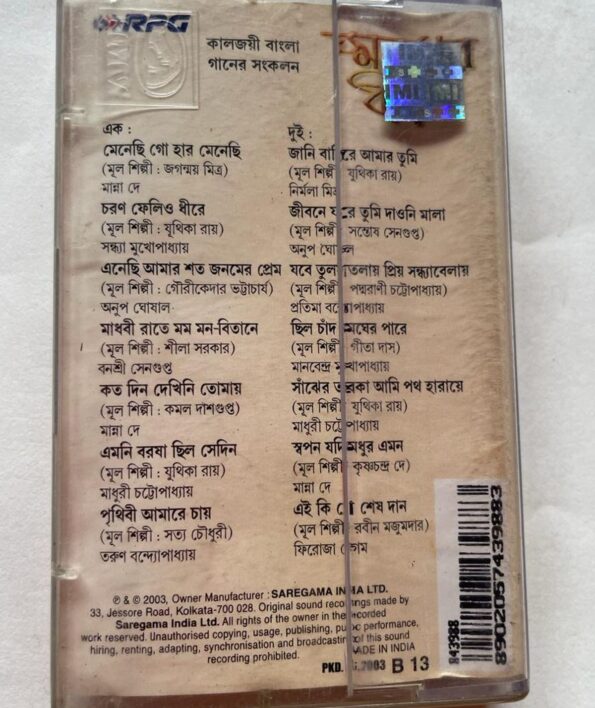 RPG
কালজয়ী বাংলা
গানের সংকলন
এক :
মেনেছি গো হার মেনেছি
(মূল শিল্পী : জগন্ময় মিত্র)
মান্না দে
চরণ ফেলিও ধীরে
(মূল শিল্পী : যূথিকা রায়)
সন্ধ্যা মুখোপাধ্যায়
এনেছি আমার শত জনমের প্রেম
(মূল শিল্পী : গৌরীকেদার ভট্টাচার্য)
অনুপ ঘোষাল
মাধবী রাতে মম মন-বিতানে
(মূল শিল্পী : শীলা সরকার)
বনশ্রী সেনগুপ্ত
কত দিন দেখিনি তোমায়
(মূল শিল্পী : কমল দাশগুপ্ত)
মান্না দে
এমনি বরষা ছিল সেদিন
(মূল শিল্পী : যূথিকা রায়)
মাধুরী চট্টোপাধ্যায়
পৃথিবী আমারে চায়
(মূল শিল্পী : সত্য চৌধুরী)
তরুণ বন্দ্যোপাধ্যায়
দুই :
জানি বাহিরে আমার তুমি
(মূল শিল্পী : যূথিকা রায়)
নির্মলা মিশ্র
জীবনে যারে তুমি দাওনি মালা
(মূল শিল্পী : সন্তোষ সেনগুপ্ত)
অনুপ ঘোষাল
যবে তুলসীতলায় প্রিয় সন্ধ্যাবেলায়
(মূল শিল্পী : পদ্মরাণী চট্টোপাধ্যায়)
প্রতিমা বন্দ্যোপাধ্যায়
ছিল চাঁদ মেঘের পারে
(মূল শিল্পী : গীতা দাস)
মানবেন্দ্র মুখোপাধ্যায়
সাঁঝের তারকা আমি পথ হারায়ে
(মূল শিল্পী : যূথিকা রায়)
মাধুরী চট্টোপাধ্যায়
স্বপন যদি মধুর এমন
(মূল শিল্পী : কৃষ্ণচন্দ্র দে)
মান্না দে
এই কি গো শেষ দান
(মূল শিল্পী : রবীন মজুমদার)
ফিরোজা বেগম
℗ & © 2003, Owner Manufacturer : SAREGAMA INDIA LTD.
33, Jessore Road, Kolkata-700 028. Original sound recordings made by
Saregama India Ltd. All rights of the owner in the recorded
work reserved. Unauthorised copying, usage, publishing, public performance,
hiring, renting, adapting, synchronisation and broadcasting of this sound
recording prohibited.
MADE IN INDIA
PKD. 2003 B 13
843988